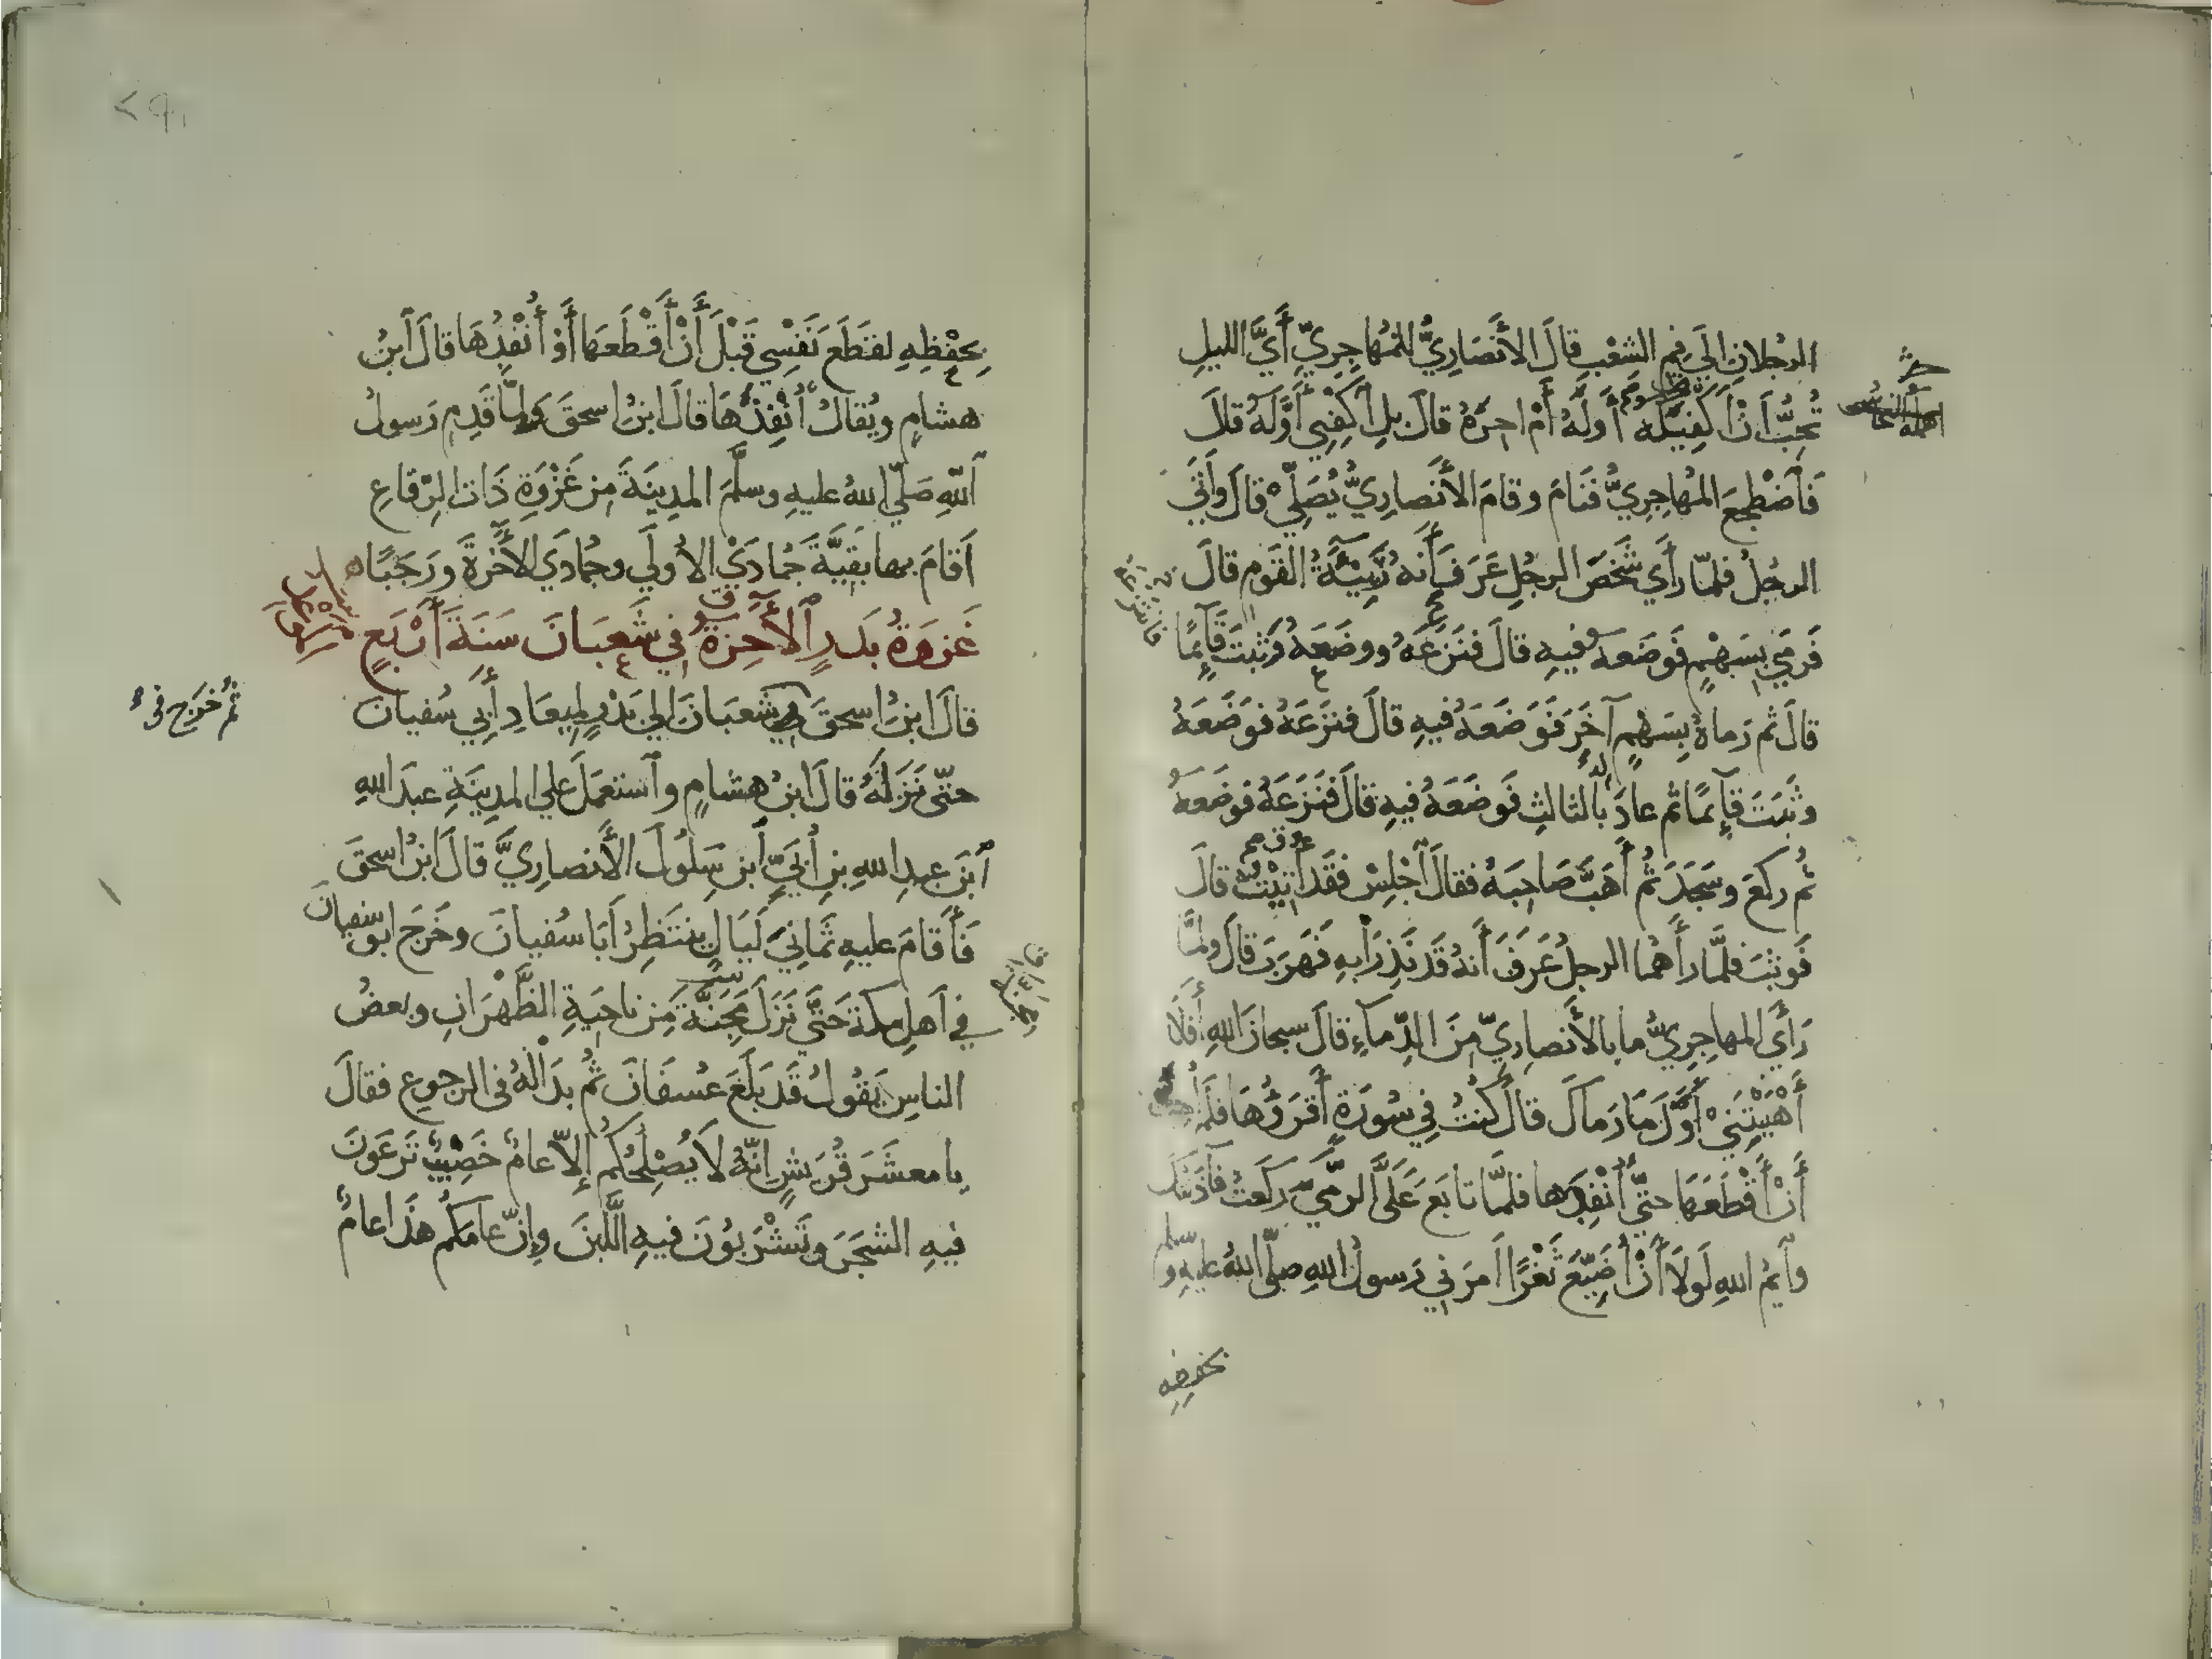 الرجلانِ الَي فمِ الشعْبِ قالَ الأَنْصَارِيُّ للمُهاجِرِيِّ أَيَّ الليلِ
تُحِبُّ أَنْ أَكْفِيَكَه أَوَّلَهُ أَمْ اخِرَهُ قالَ بلِ ٱكْفِنِي أَوَّلَهُ قالَ
فَٱضْطجَعَ المُهاجِرِيُّ فَنَامَ وقامَ الأَنصارِيُّ يُصَلِّيْ قالَ وأَتَي
الرجُلُ فلمّا رأَي شَخْصَ الرجُلِ عَرَفَ أَنهُ رَبِيْئَةُ القَومِ قالَ
فَرمَي بِسَهْمٍ فَوضَعهُ فيهِ قالَ فنَزَعَهُ ووضَعهُ وَثبتَ قَآئِمًا
قالَ ثم رَماهُ بِسَهْمٍ آخَرَ فَوَضَعَهُ فيهِ قالَ فنزَعَهُ فوَضَعَهُ
وثَبَتَ قآئِمًا ثم عادَ بالثالثِ فَوضَعَهُ فيهِ قالَ فنَزَعَهُ فوضَعهُ
ثُم ركعَ وسَجَدَ ثُم أَهَبَّ صَاحِبَهُ فقالَ ٱجْلِسْ فقَد أُتِيْتُ قالَ
فَوثبَ فلمَّا رأَهُما الرجلُ عَرَفَ أَنهُ قَد نَذِرَا بِهِ فَهَربَ قالَ ولمَّا
رَأَي المهاجِرِيُّ ما بالأَنصارِيِّ مِنَ الدِّمآءِ قالَ سبحانَ اللهِ أَفَلَا
أَهْبَبْتَنِيْ أَوَّلَ مَا رَماكَ قالَ كُنتُ فِي سُورَةٍ أَقرَؤُهَا فلَم أُحِبَّ
أَنْ أَقْطَعَهَا حتَّي أُنْفِدَها فلمَّا تابَعَ عَلَيَّ الرَّميَ رَكَعتُ فآذَنْتُكَ
وٱيمُ اللهِ لَولَا أَنْ أُضَيِّعَ ثَغْرًا أَمرَنِي رَسولُ اللهِ صلّى اللهُ عليهِ وسلم
بحفظِهِ
بِحِفْظِهِ لقَطَعَ نَفْسِي قَبْلَ أَنْ أَقْطَعَهَا أَوْ أُنْفِدَهَا قالَ ٱبنُ
هشامٍ ويُقالُ أُنْفِذَهَا قالَ ابنُ اسحقَ ولمّا قَدِم رَسولُ
ٱللهِ صَلّي اللهُ عليهِ وسلَّمَ المدِينَةَ مِن غَزْوَةِ ذَات الرِّقاعِ
أَقامَ بها بَقِيَّةَ جُمادَي الأولَي وجُمادَي الأَخِرةَ ورَجَبًا
غَزوَةُ بَدرٍ ٱلأَخِرَةُ فِي شَعبَانَ سَنَةَ أَرْبَعٍ
قالَ ابنُ اسحقَ في شعبَانَ الي بَدْرٍ لِمِيعَادِ أَبِي سُفيانَ
ثُم خَرَج في
حتّى نَزَلَهُ قالَ ابنُ هشامٍ وٱستعمَلَ علي المدِينَةِ عبدَ اللهِ
ٱبنَ عبدِ اللهِ بنِ أُبَيِّ ٱبنِ سَلُولَ الأَنصارِيَّ قالَ ابنُ اسحقَ
فَأَقامَ عليهِ ثَمانِيَ لَيَالٍ ينتَظِرُ أَبَا سُفيانَ وخَرَجَ ابو سفيانَ
في أهلِ مكةَ حَتَّي نَزَلَ مَجَنَّةَ مِن ناحِيَةِ الظَّهْرَانِ وبعضُ
الناسِ يَقُولُ قَد بَلَغَ عُسفَانَ ثُم بدَا لهُ في الرجوعِ فقالَ
يا معشَرَ قُرَيشٍ إنّهُ لَا يُصْلِحُكُم إلّا عامٌ خَصِيبٌ تَرعَونَ
فيهِ الشجَرَ وتَشْرَبُونَ فيهِ اللَّبَنَ وإنَّ عامَكُم هَذَا عامُ